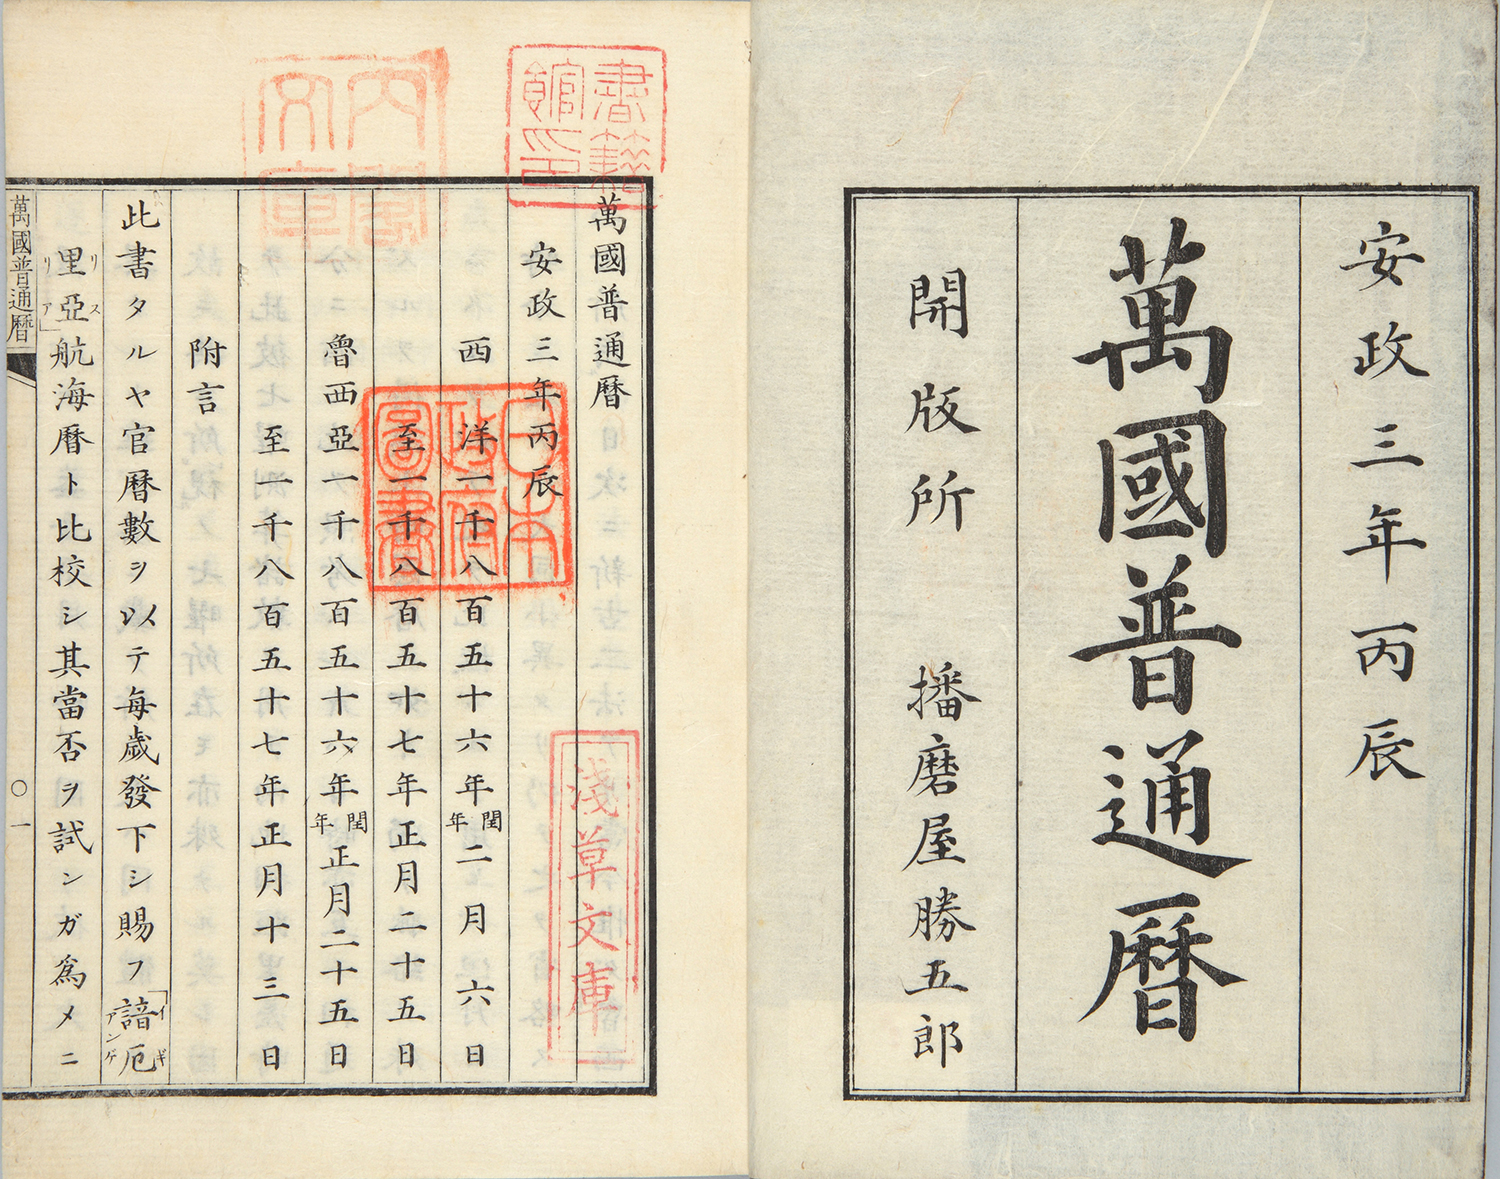 安政三年丙辰
萬國普通暦
開版所 播磨屋勝五郎
書籍館印
内閣文庫
日本政府圖書
淺草文庫
萬國普通暦
安政三年丙辰
西洋一千八百五十六年閏年二月六日
至一千八百五十七年正月二十五日
魯西亞一千八百五十六年閏年正月二十五日
至一千八百五十七年正月十三日
附言
此書タルヤ官暦數ヲ以テ毎歳發下シ賜フ諳厄
イギ
アンゲ
里亞航海暦ト比校シ其當否ヲ試ンガ為メニ
リス
リア
萬國普通暦
〇一